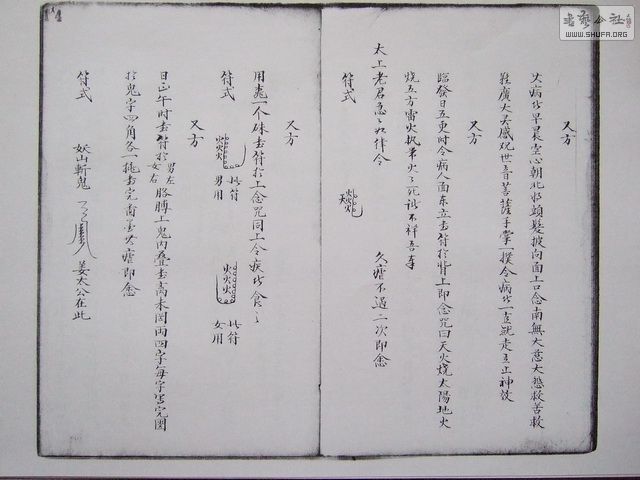 又方
其病者早晨空心朝北將頭髮披向面上口念南無大慈大悲救苦救
難廣大灵感观世音菩萨手掌一撲令病者一直就走立止神效
又方
臨發日五更时令病人面东立書符於背上即念咒曰天火燒太陽地火
燒五方雷火执常火了死諸不祥吾奉
太上老君急急如律令
符式
久瘧不過二次即愈
又方
用棗一个硃書符於上念咒同上令疾者食之
符式
火火火
此符男用
火火火
此符女用
又方
日正午时書符於男左女右胳膊上鬼内叠書
於鬼字四角各一挑書完
其瘧即愈
符式
妖山斬鬼
姜太公在此
書藝公社
WWW.SHUFA.ORG